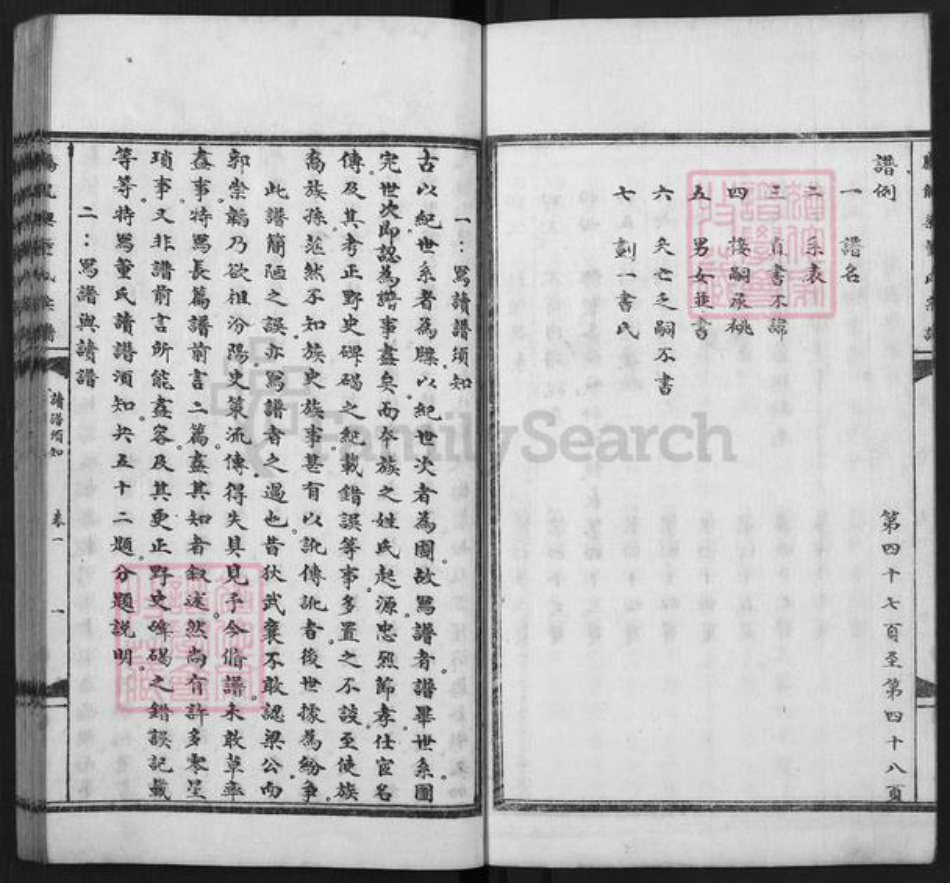 譜例 第四十七頁至第四十八頁
一 譜名
二 系表
三 直書不諱
四 接嗣承祧
五 男女並書
六 夭亡之嗣不書
七 劃一書氏
一：寫讀譜須知
古以紀世系者為牒以紀世次者為圖故寫譜者譜畢世系圖
完世次即認為譜事盡矣而本族之姓氏起源忠烈節孝仕宦名
傳及其考正野史碑碣之紀載錯誤等事多置之不談至使族
裔族孫茫然不知族史族事甚有以訛傳訛者後世據為紛爭
此譜簡陋之誤亦寫譜者之過也昔狄武襄不敢認梁公而
郭崇韜乃欲祖汾陽史策流傳得失具見予今脩譜未敢草率
盡事特寫長篇譜前言二篇盡其知者敘述然尚有許多零星
瑣事又非譜前言所能盡容及其更正野史碑碣之錯誤記載
等等特寫董氏讀譜須知共五十二題分題說明
二：寫譜與讀譜
讀譜須知 卷一 一
FamilySearch